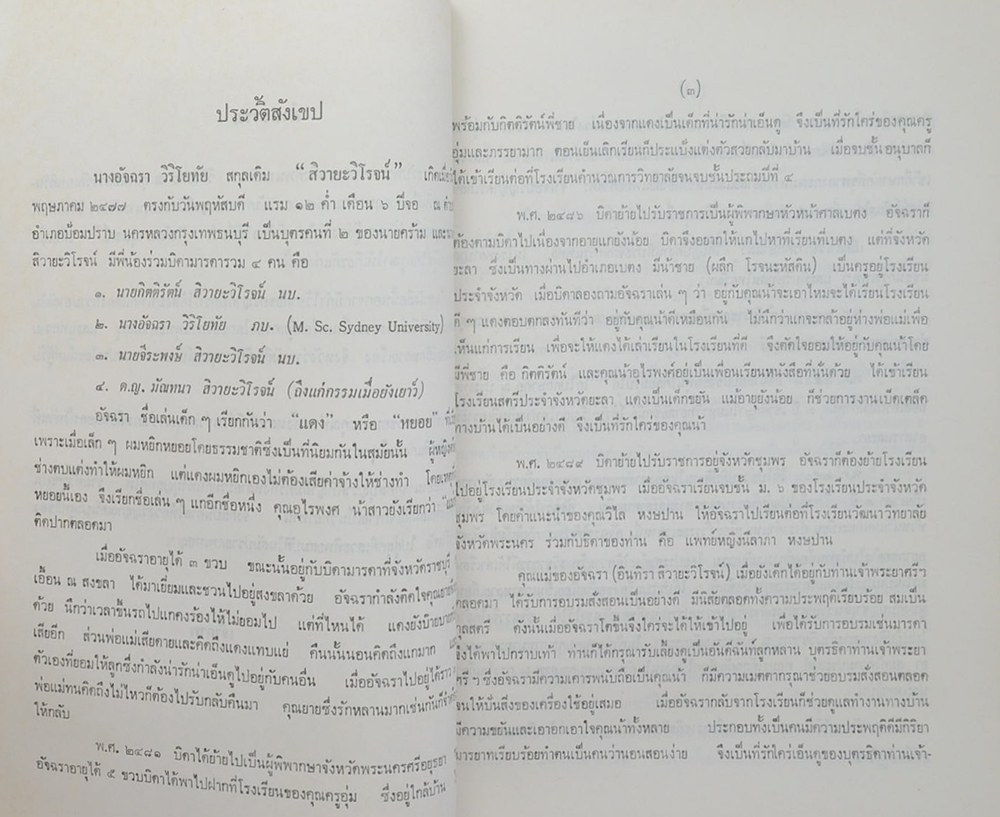 ประวัติสังเขป
นางอัจฉรา วิริโยทัย สกุลเดิม “สิวายะวิโรจน์” เกิดเมื่อ
พฤษภาคม ๒๔๗๗ ตรงกับวันพฤหัสบดี แรม ๑๒ ค่ำ เดือน ๖ ปีจอ ณ
อำเภอป้อมปราบ นครหลวงกรุงเทพธนบุรี เป็นบุตรคนที่ ๒ ของนายคร้าม และ
สิวายะวิโรจน์ มีพี่น้องร่วมบิดามารดารวม ๔ คน คือ
๑. นายกิตติรัตน์ สิวายะวิโรจน์ นบ.
๒. นางอัจฉรา วิริโยทัย ภบ. (M. Sc. Sydney University)
๓. นายจีระพงษ์ สิวายะวิโรจน์ นบ.
๔. ด.ญ. มัณทนา สิวายะวิโรจน์ (ถึงแก่กรรมเมื่อยังเยาว์)
อัจฉรา ชื่อเล่นเด็ก ๆ เรียกกันว่า “แดง” หรือ “หยอย”
เพราะเมื่อเล็ก ๆ ผมหยิกหยอยโดยธรรมชาติซึ่งเป็นที่นิยมกันในสมัยนั้น ผู้หญิง
ช่างตบแต่งทำให้ผมหยิก แต่แดงผมหยิกเองไม่ต้องเสียค่าจ้างให้ช่างทำ โดย
หยอยนี้เอง จึงเรียกชื่อเล่น ๆ แกอีกชื่อหนึ่ง คุณอุไรพงศ น้าสาวยังเรียกว่า
ติดปากตลอดมา
เมื่ออัจฉราอายุได้ ๓ ขวบ ขณะนั้นอยู่กับบิดามารดาที่จังหวัดราชบุรี
เอื้อน ณ สงขลา ได้มาเยี่ยมและชวนไปอยู่สงขลาด้วย อัจฉรากำลังติดใจคุณยาย
ด้วย นึกว่าเวลาขึ้นรถไปแกคงร้องไห้ไม่ยอมไป แต่ที่ไหนได้ แดงยังบ๊ายบาย
เสียอีก ส่วนพ่อแม่เสียดายและคิดถึงแดงแทบแย่ คืนนั้นนอนคิดถึงแกมาก
ตัวเองที่ยอมให้ลูกซึ่งกำลังน่ารักน่าเอ็นดูไปอยู่กับคนอื่น เมื่ออัจฉราไปอยู่ได้ราว
พ่อแม่ทนคิดถึงไม่ไหวก็ต้องไปรับกลับคืนมา คุณยายซึ่งรักหลานมากเช่นกันก็
ให้กลับ
พ.ศ. ๒๔๘๑ บิดาได้ย้ายไปเป็นผู้พิพากษาจังหวัดพระนครศรีอยุธยา
อัจฉราอายุได้ ๕ ขวบบิดาได้พาไปฝากที่โรงเรียนของคุณครูอุ่ม ซึ่งอยู่ใกล้บ้าน
(๓)
พร้อมกับกิตติรัตน์พี่ชาย เนื่องจากแดงเป็นเด็กที่น่ารักน่าเอ็นดู จึงเป็นที่รักใคร่ของคุณครู
อุ่มและภรรยามาก ตอนเย็นเลิกเรียนก็ประแป้งแต่งตัวสวยกลับมาบ้าน เมื่อจบชั้นอนุบาลก็
ได้เข้าเรียนต่อที่โรงเรียนคำนวณการวิทยาลัยจนจบชั้นประถมปีที่ ๔
พ.ศ. ๒๔๘๖ บิดาย้ายไปรับราชการเป็นผู้พิพากษาหัวหน้าศาลเบตง อัจฉราก็
ต้องตามบิดาไปเนื่องจากอายุแกยังน้อย บิดาจึงอยากให้แกไปหาที่เรียนที่เบตง แต่ที่จังหวัด
ยะลา ซึ่งเป็นทางผ่านไปอำเภอเบตง มีน้าชาย (ผลึก โรจนะหัสดิน) เป็นครูอยู่โรงเรียน
ประจำจังหวัด เมื่อบิดาลองถามอัจฉราเล่น ๆ ว่า อยู่กับคุณน้าจะเอาไหมจะได้เรียนโรงเรียน
ดี ๆ แดงตอบตกลงทันทีว่า อยู่กับคุณน้าดีเหมือนกัน ไม่นึกว่าแกจะกล้าอยู่ห่างพ่อแม่เพื่อ
เห็นแก่การเรียน เพื่อจะให้แดงได้เล่าเรียนในโรงเรียนที่ดี จึงตัดใจยอมให้อยู่กับคุณน้าโดย
มีพี่ชาย คือ กิตติรัตน์ และคุณน้าอุไรพงศ์อยู่เป็นเพื่อนเรียนหนังสือที่นั่นด้วย ได้เข้าเรียน
โรงเรียนสตรีประจำจังหวัดยะลา แดงเป็นเด็กขยัน แม้อายุยังน้อย ก็ช่วยการงานเบ็ดเตล็ด
ทางบ้านได้เป็นอย่างดี จึงเป็นที่รักใคร่ของคุณน้า
พ.ศ. ๒๔๘๙ บิดาย้ายไปรับราชการอยู่จังหวัดชุมพร อัจฉราก็ต้องย้ายโรงเรียน
ไปอยู่โรงเรียนประจำจังหวัดชุมพร เมื่ออัจฉราเรียนจบชั้น ม. ๖ ของโรงเรียนประจำจังหวัด
ชุมพร โดยคำแนะนำของคุณวิไล หงษปาน ให้อัจฉราไปเรียนต่อที่โรงเรียนวัฒนาวิทยาลัย
จังหวัดพระนคร ร่วมกับธิดาของท่าน คือ แพทย์หญิงนีลาภา หงษปาน
คุณแม่ของอัจฉรา (อินทิรา สิวายะวิโรจน์) เมื่อยังเด็กได้อยู่กับท่านเจ้าพระยาศรีฯ
ตลอดมา ได้รับการอบรมสั่งสอนเป็นอย่างดี มีนิสัยตลอดทั้งความประพฤติเรียบร้อย สมเป็น
กุลสตรี ดังนั้นเมื่ออัจฉราโตขึ้นจึงใคร่จะได้ให้เข้าไปอยู่ เพื่อได้รับการอบรมเช่นมารดา
จึงได้พาไปกราบเท้า ท่านก็ได้กรุณารับเลี้ยงดูเป็นอันดีฉันท์ลูกหลาน บุตรธิดาท่านเจ้าพระยา
ศรี ๆ ซึ่งอัจฉรามีความเคารพนับถือเป็นคุณน้า ก็มีความเมตตากรุณาช่วยอบรมสั่งสอนตลอด
จนให้ปันสิ่งของเครื่องใช้อยู่เสมอ เมื่ออัจฉรากลับจากโรงเรียนก็ช่วยดูแลทำงานทางบ้าน
มีความขยันและเอาอกเอาใจคุณน้าทั้งหลาย ประกอบทั้งเป็นคนมีความประพฤติดีมีกิริยา
มารยาทเรียบร้อยทำตนเป็นคนว่านอนสอนง่าย จึงเป็นที่รักใคร่เอ็นดูของบุตรธิดาท่านเจ้า-